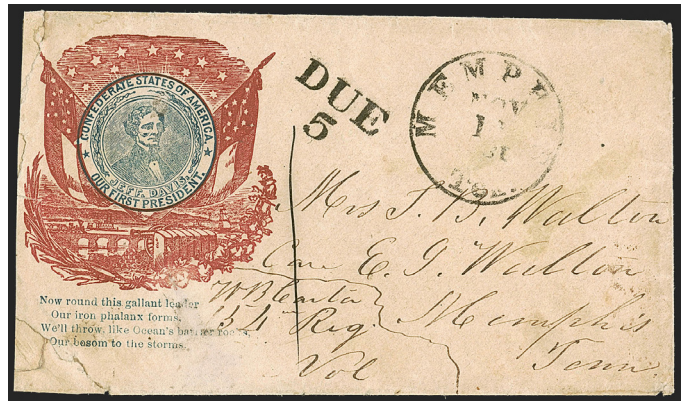 CONFEDERATE STATES OF AMERICA.
JEFF. DAVIS
OUR FIRST PRESIDENT.
Now round this gallant leader
Our iron phalanx forms,
We'll throw, like Ocean's barrier rocks,
Our besom to the storms.
DUE
5
MEMPH
NOV
61
Mrs Walton
Care E. J. Walton
Memphis
Tenn
W B
154 Reg
Vol